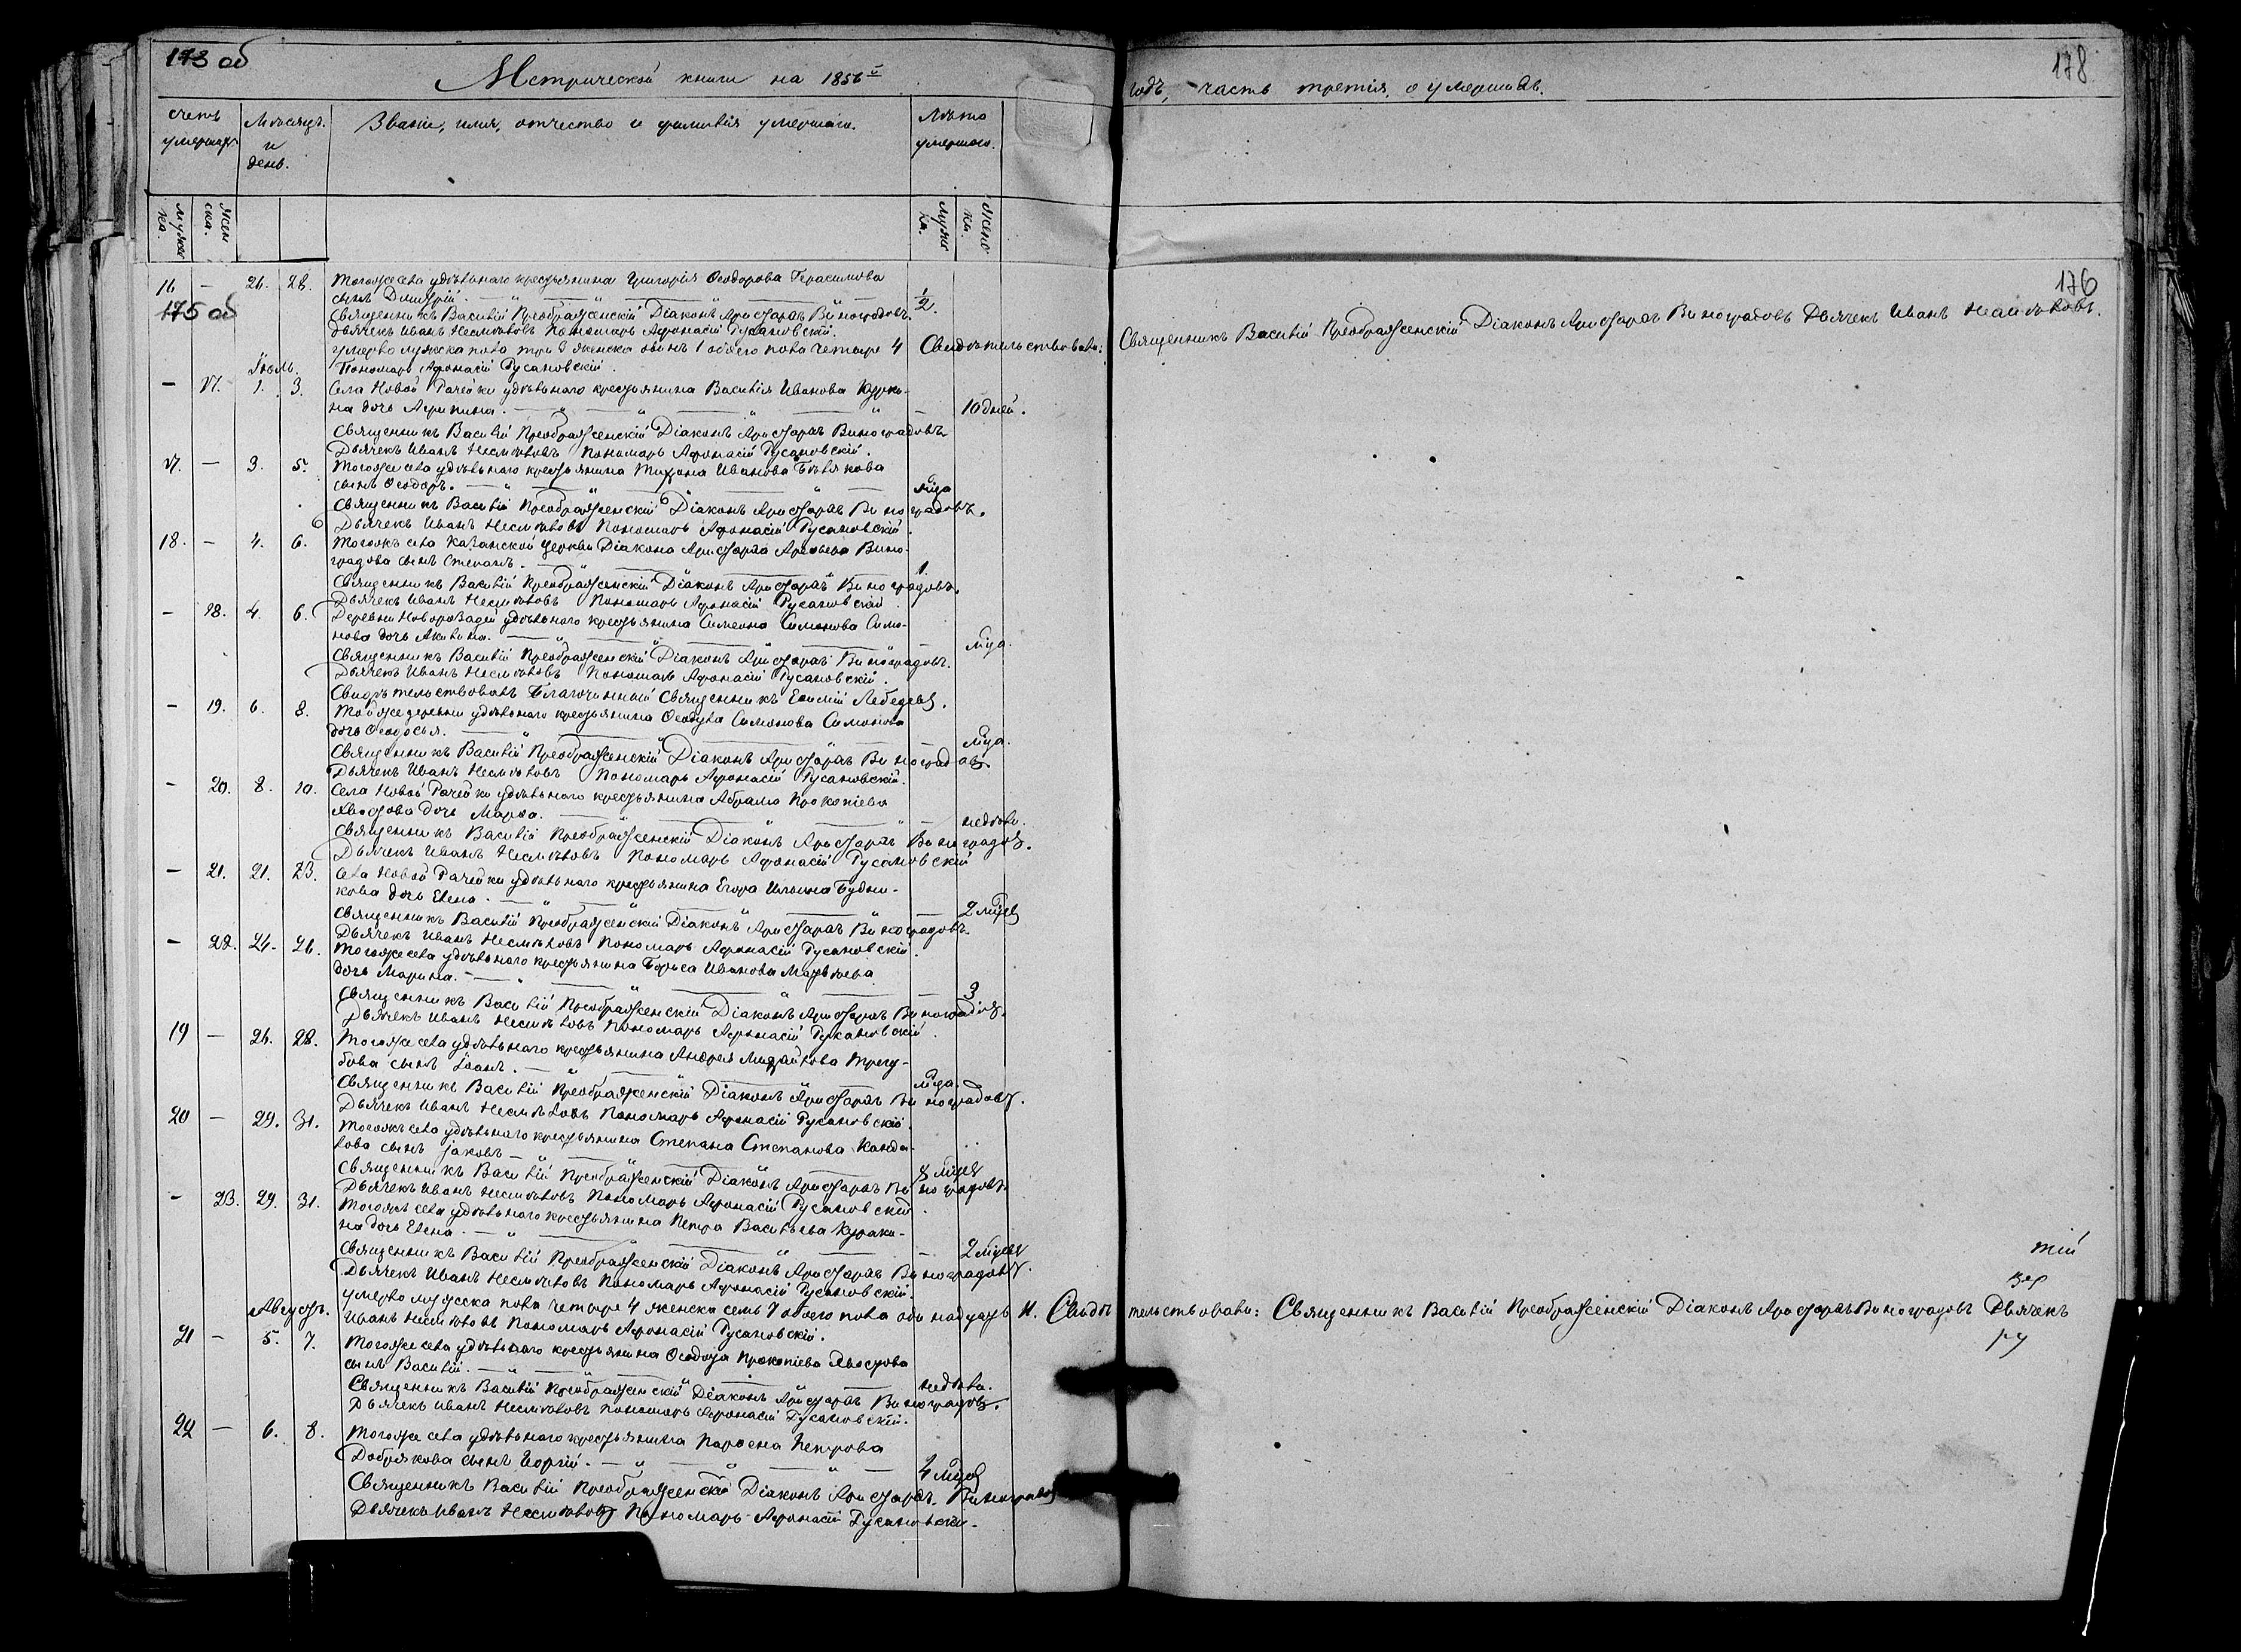 173 об
178
Метрической книги на 1856й годъ, часть третія, о умершихъ.
счетъ умершихъ
Мѣсяцъ и день.
Званіе, имя, отчество и фамилія умершаго.
Лѣта умершаго.
мужеска.
женска.
мужека.
женска.
176
16 — 26. 28. Тогоже села удѣльнаго крестьянина Григорія Ѳеодорова Герасимова
сынъ Дмитрій. 1/2.
175 об
Священникъ Василій Преображенскій Діаконъ Аристархъ Виноградовъ
Дьячекъ Иванъ Несмѣловъ Пономарь Афонасій Русановскій.
умерло мужска пола три 3 женска одинъ 1 обоего пола четыре 4 Свидѣтельствовали: Священникъ Василій Преображенскій Діаконъ Аристархъ Виноградовъ Дьячекъ Иванъ Несмѣловъ.
Пономарь Афонасій Русановскій.
Іюль.
— 17. 1. 3. Села Новой Рачейки удѣльнаго крестьянина Василія Иванова Курако-
на дочь Агрипина. — 10 дней.
Священникъ Василій Преображенскій Діаконъ Аристархъ Виноградовъ
Дьячекъ Иванъ Несмѣловъ Пономарь Афонасій Русановскій.
17. — 3. 5. Тогоже села удѣльнаго крестьянина Тихона Иванова Бѣлякова
сынъ Ѳеодоръ. мца
Священникъ Василій Преображенскій Діаконъ Аристархъ Виноградовъ.
Дьячекъ Иванъ Несмѣловъ Пономарь Афонасій Русановскій
18. — 4. 6. Тогожъ села Казанской церкви Діакона Аристарха Виноградова сынъ Степанъ. 1.
Священникъ Василій Преображенскій Діаконъ Аристархъ Виноградовъ.
Дьячекъ Иванъ Несмѣловъ Пономарь Афонасій Русановскій
— 18. 4. 6. Деревни удѣльнаго крестьянина Симеона Симонова Симо-
нова дочь Акилина. — мца.
Священникъ Василій Преображенскій Діаконъ Аристархъ Виноградовъ.
Дьячекъ Иванъ Несмѣловъ Пономарь Афонасій Русановскій.
Свидѣтельствовалъ Благочинный Священникъ Лебедевъ.
— 19. 6. 8. Тойже деревни удѣльнаго крестьянина Ѳеодула Симонова Симонова
дочь Ѳеодосья. — мца.
Священникъ Василій Преображенскій Діаконъ Аристархъ Виноградовъ.
Дьячекъ Иванъ Несмѣловъ Пономарь Афонасій Русановскій.
— 20. 8. 10. Села Новой Рачейки удѣльнаго крестьянина Абрама Прокопіева
Хвостова дочь Марѳа. — недѣли.
Священникъ Василій Преображенскій Діаконъ Аристархъ Виноградовъ.
Дьячекъ Иванъ Несмѣловъ Пономарь Афонасій Русановскій
— 21. 21. 23. Села Новой Рачейки удѣльнаго крестьянина Егора Ильина Будни-
кова дочь Елена. — 2 мцевъ
Священникъ Василій Преображенскій Діаконъ Аристархъ Виноградовъ.
Дьячекъ Иванъ Несмѣловъ Пономарь Афонасій Русановскій.
— 22. 24. 26. Тогоже села удѣльнаго крестьянина Бориса Иванова
дочь Марина. — 3
Священникъ Василій Преображенскій Діаконъ Аристархъ Виноградовъ.
Дьячекъ Иванъ Несмѣловъ Пономарь Афонасій Русановскій.
19 — 26. 28. Тогоже села удѣльнаго крестьянина Андрея Михайлова Трегу-
бова сынъ Іоанъ. мца.
Священникъ Василій Преображенскій Діаконъ Аристархъ Виноградовъ.
Дьячекъ Иванъ Несмѣловъ Пономарь Афонасій Русановскій.
20 — 29. 31. Тогожъ села удѣльнаго крестьянина Степана Степанова Канда-
лова сынъ Іаковъ 8 мцевъ
Священникъ Василій Преображенскій Діаконъ Аристархъ Виноградовъ
Дьячекъ Иванъ Несмѣловъ Пономарь Афонасій Русановскій.
— 23. 29. 31. Тогожъ села удѣльнаго крестьянина Петра Васильева Кураки-
на дочь Елена. — 2 мцевъ
Священникъ Василій Преображенскій Діаконъ Аристархъ Виноградовъ.
Дьячекъ Иванъ Несмѣловъ Пономарь Афонасій Русановскій.
тій
умерло мужеска пола четыре 4 женска семь 7 обоего пола одинадцать 11. Свидѣтельствовали: Священникъ Василій Преображенскій Діаконъ Аристархъ Виноградовъ Дьячекъ
Иванъ Несмѣловъ Пономарь Афонасій Русановскій.
Августъ.
21 — 5. 7. Тогоже села удѣльнаго крестьянина Прокопіева Хвостова
сынъ Василій. недѣли.
Священникъ Василій Преображенскій Діаконъ Аристархъ Виноградовъ.
Дьячекъ Иванъ Несмѣловъ Пономарь Афонасій Русановскій.
22 — 6. 8. Тогоже села удѣльнаго крестьянина Парѳена Петрова
Добрякова сынъ Георгій. 4 мцевъ
Священникъ Василій Преображенскій Діаконъ Аристархъ Виноградовъ
Дьячекъ Иванъ Несмѣловъ Пономарь Афонасій Русановскій.